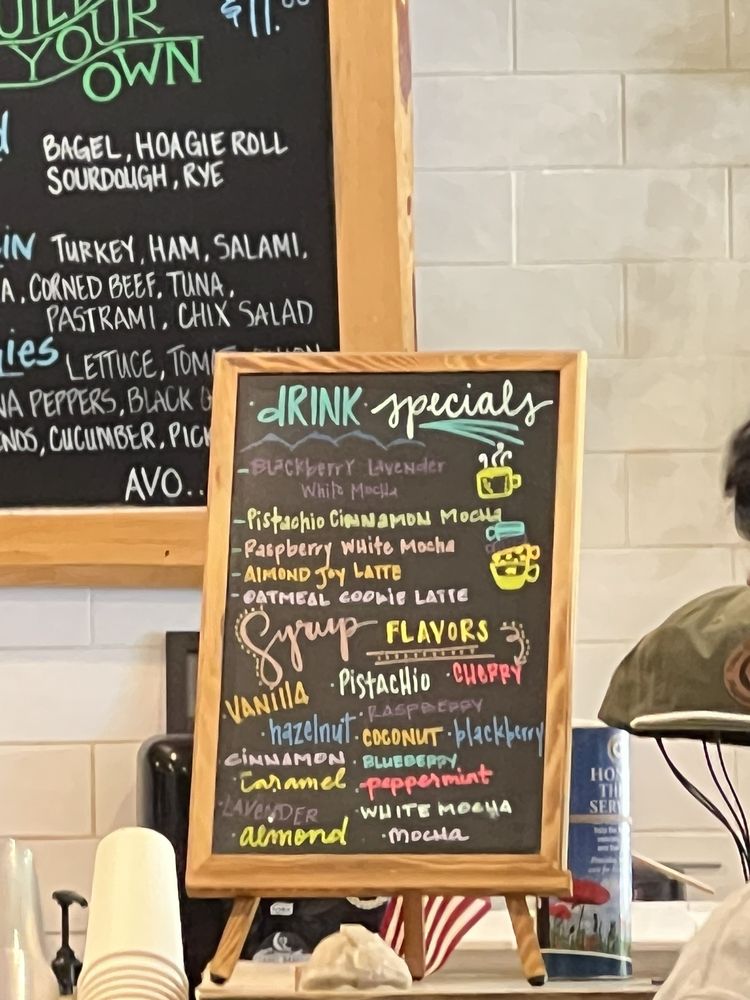 YOUR
OWN
$11.00
BAGEL, HOAGIE ROLL
SOURDOUGH, RYE
TURKEY, HAM, SALAMI,
CORNED BEEF, TUNA,
PASTRAMI, CHIX SALAD
LETTUCE,
PEPPERS, BLACK
CUCUMBER,
AVO..
DRINK specials
- Blackberry Lavender
White Mocha
- Pistachio Cinnamon Mocha
- Raspberry White Mocha
- ALMOND JOY LATTE
- OATMEAL COOKIE LATTE
Syrup FLAVORS
Vanilla · Pistachio · CHERRY
· RASPBERRY
· hazelnut · COCONUT · blackberry
· CINNAMON · BLUEBERRY
· Caramel · peppermint
· LAVENDER · WHITE MOCHA
· almond · MOCHA